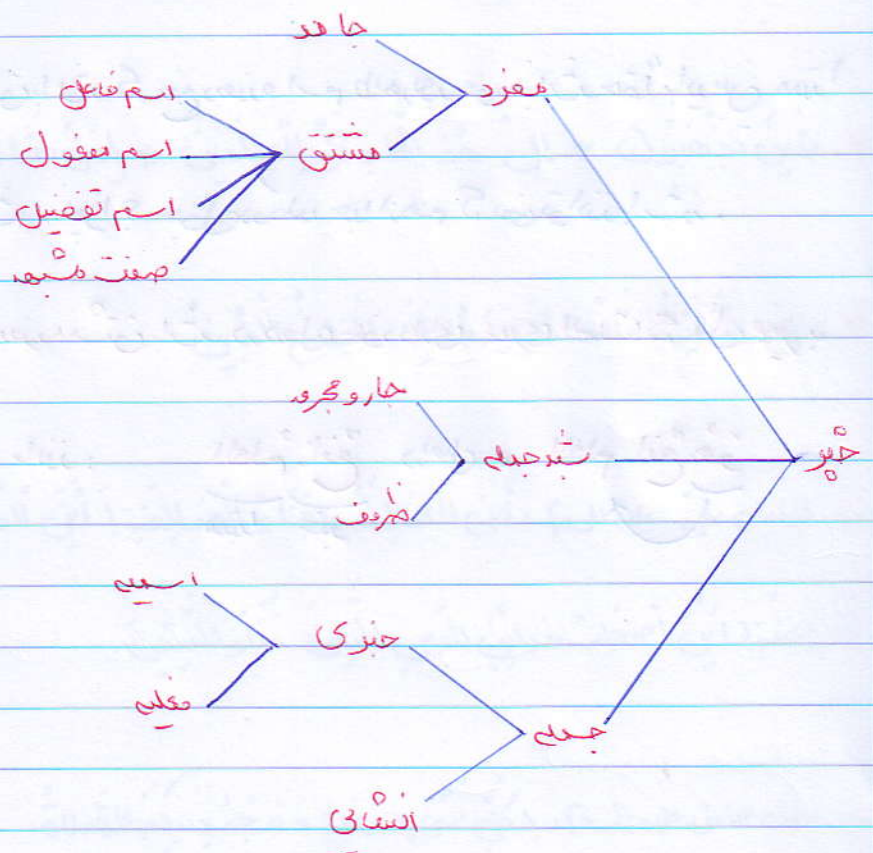 خبر
مفرد
جامد
مشتق
اسم فاعل
اسم مفعول
اسم تفضیل
صفت مشبهه
شبه جمله
جار و مجرور
ظروف
جمله
خبری
اسمیه
فعلیه
انشایی